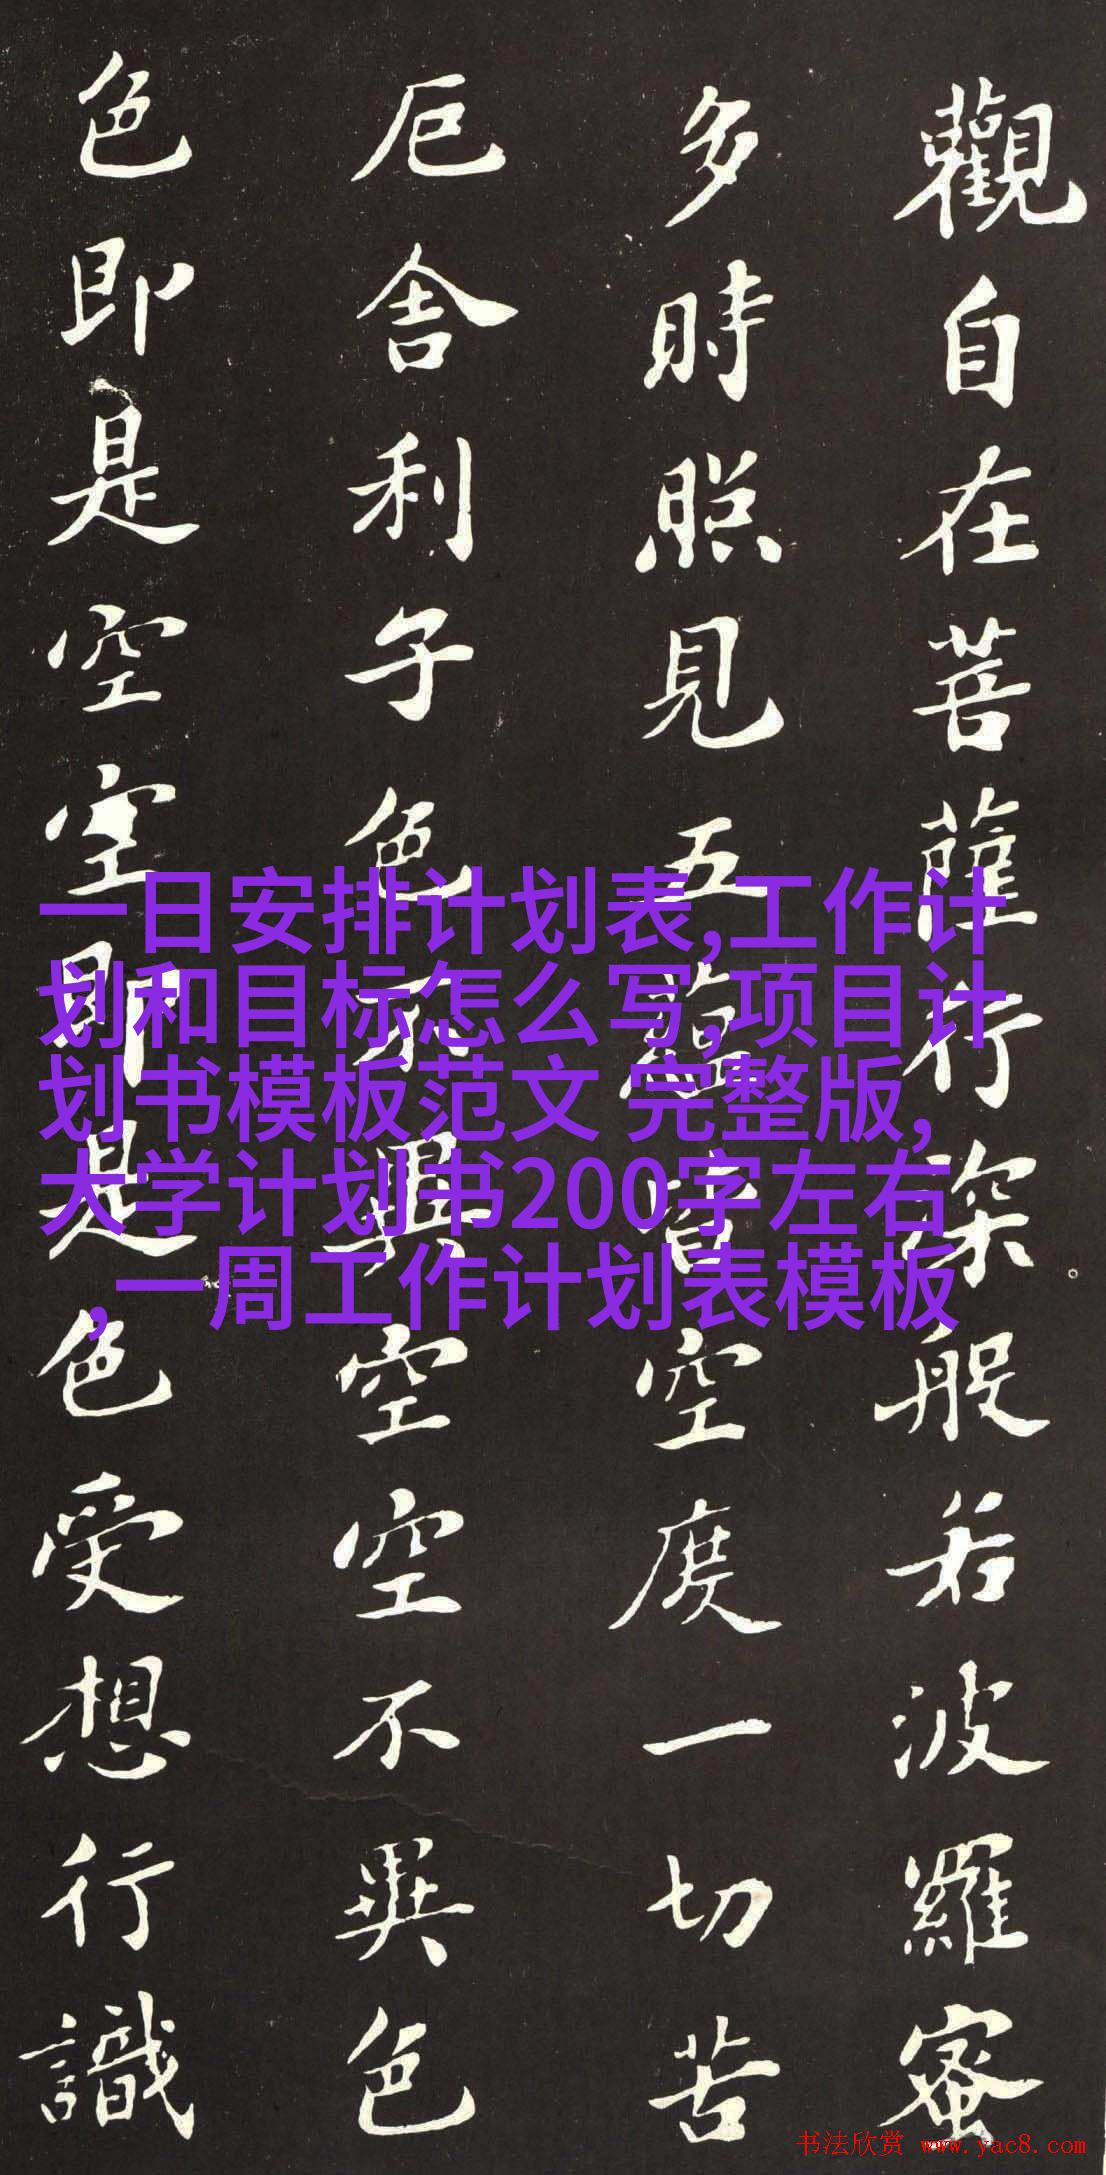 觀自在菩薩行深般若波羅蜜
多時照見五蘊皆空度一切苦
厄舍利子色不異空空不異色
色即是空空即是色受想行識
一日安排计划表,工作计
划和目标怎么写,项目计
划书模板范文 完整版,
大学计划书200字左右
,一周工作计划表模板
书法欣赏 www.yac8.com